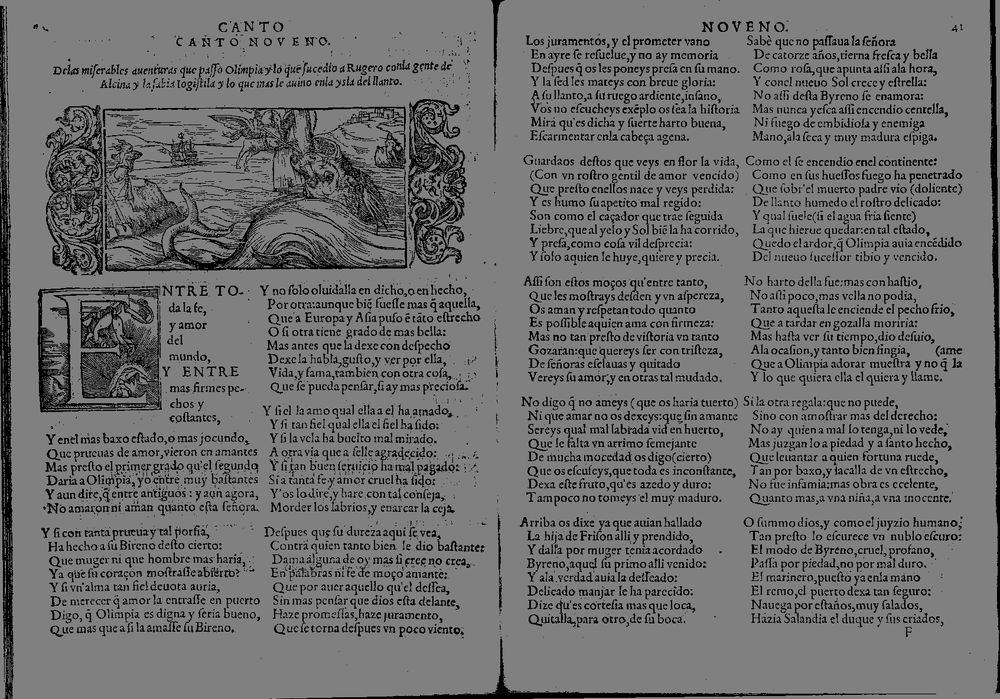 CANTO
CANTO NOVENO.
De las miserables auenturas que passò Olimpia y lo que sucedio a Rugero con la gente de
Alcina y la sabia logistila y lo que mas le auino en la ysla del llanto.
ENTRE TO-
da la fe,
y amor
del
mundo,
Y ENTRE
mas firmes pe-
chos y
costantes,
Y en el mas baxo estado, o mas jocundo,
Que prueuas de amor, vieron en amantes
Mas presto el primer grado qu'el segundo
Daria a Olimpia, yo entre muy bastantes
Y aun dire, q̃ entre antiguos: y aun agora,
No amaron ni aman quanto esta señora.
Y si con tanta prueua y tal porfia,
Ha hecho a su Bireno desto cierto:
Que muger ni que hombre mas haria,
Ya que su coraçon mostrasse abierto?
Y si vn'alma tan fiel deuota auria,
De merecer q̃ amor la entrasse en puerto
Digo, q̃ Olimpia es digna y seria bueno,
Que mas que a si la amasse su Bireno.
Y no solo oluidalla en dicho, o en hecho,
Por otra: aunque biẽ fuesse mas q̃ aquella,
Que a Europa y Asia puso ẽ tãto estrecho
O si otra tiene grado de mas bella:
Mas antes que la dexe con despecho
Dexe la habla, gusto, y ver por ella,
Vida, y fama, tambien con otra cosa,
Que se pueda pensar, si ay mas preciosa.
Y si el la amo qual ella a el ha amado,
Y si tan fiel qual ella el fiel ha sido:
Y si la vela ha buelto mal mirado.
A otra via que a selle agradecido:
Y si tan buen seruicio ha mal pagado:
Si a tanta fe y amor cruel ha sido:
Y'os lo dire, y hare con tal conseja,
Morder los labrios, y enarcar la ceja.
Despues que su dureza aqui se vea,
Contra quien tanto bien le dio bastante:
Dama alguna de oy mas si cree no crea,
En palabras ni fe de moço amante:
Que por auer aquello qu'el dessea,
Sin mas pensar que dios esta delante,
Haze promessas, haze juramento,
Que se torna despues vn poco viento.
NOVENO.
41
Los juramentos, y el prometer vano
En ayre se resuelue, y no ay memoria
Despues q̃ os les poneys presa en su mano.
Y la sed les mateys con breue gloria:
A su llanto, a su ruego ardiente, insano,
Vos no escucheys exẽplo os sea la historia
Mira qu'es dicha y suerte harto buena,
Escarmentar en la cabeça agena.
Guardaos destos que veys en flor la vida,
(Con vn rostro gentil de amor vencido)
Que presto en ellos nace y veys perdida:
Y es humo su apetito mal regido:
Son como el caçador que trae seguida
Liebre, que al yelo y Sol biẽ la ha corrido,
Y presa, como cosa vil desprecia:
Y solo a quien le huye, quiere y precia.
Assi son estos moços qu'entre tanto,
Que les mostrays desden y vn aspereza,
Os aman y respetan todo quanto
Es possible a quien ama con firmeza:
Mas no tan presto de vistoria vn tanto
Gozaran: que quereys ser con tristeza,
De señoras esclauas y quitado
Vereys su amor, y en otras tal mudado.
No digo q̃ no ameys (que os haria tuerto)
Ni que amar no os dexeys: que sin amante
Sereys qual mal labrada vid en huerto,
Que le falta vn arrimo semejante
De mucha mocedad os digo (cierto)
Que os escuseys, que toda es inconstante,
Dexa este fruto, qu'es azedo y duro:
Tampoco no tomeys el muy maduro.
Arriba os dixe ya que auian hallado
La hija de Frison alli y prendido,
Y dalla por muger tenia acordado
Byreno, aquel su primo alli venido:
Y a la verdad auia la desseado:
Delicado manjar le ha parecido:
Dize qu'es cortesia mas que loca,
Quitalla, para otro, de su boca.
Sabè que no passaua la señora
De catorze años, tierna fresca y bella
Como rosa, que apunta assi a la hora,
Y con el nueuo Sol crece y estrella:
No assi desta Byreno se enamora:
Mas nunca yesca assi encendio centella,
Ni fuego de embidiosa y enemiga
Mano, a la seca y muy madura espiga.
Como el se encendio en el continente:
Como en sus huessos fuego ha penetrado
Que sobr'el muerto padre vio (doliente)
De llanto humedo el rostro delicado:
Y qual suele (si el agua fria siente)
La que hierue quedar: en tal estado,
Quedo el ardor, q̃ Olimpia auia encẽdido
Del nueuo sucessor tibio y vencido.
No harto della fue: mas con hastio,
No assi poco, mas vella no podia,
Tanto aquesta le enciende el pecho frio,
Que a tardar en gozalla moriria:
Mas hasta ver su tiempo, dio desuio,
A la ocasion, y tanto bien fingia, (ame
Que a Olimpia adorar muestra y no q̃ la
Y lo que quiera ella el quiera y llame.
Si la otra regala: que no puede,
Sino con amostrar mas del derecho:
No ay quien a mal lo tenga, ni lo vede,
Mas juzgan lo a piedad y a santo hecho,
Que leuantar a quien fortuna ruede,
Tan por baxo, y sacalla de vn estrecho,
No fue infamia: mas obra es ecelente,
Quanto mas, a vna niña, a vna inocente.
O summo dios, y como el juyzio humano,
Tan presto lo escurece vn nublo escuro:
El modo de Byreno, cruel, profano,
Passa por piedad, no por mal duro.
El marinero, puesto ya en la mano
El remo, el puerto dexa tan seguro:
Nauega por estaños, muy salados,
Hazia Salandia el duque y sus criados,
F